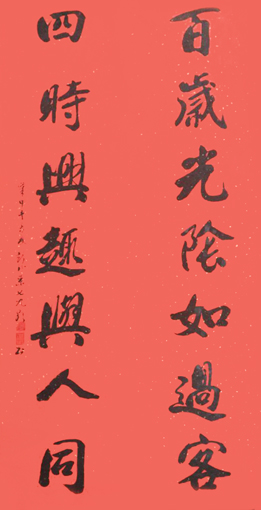 百歲光陰如過客
四時興趣與人同